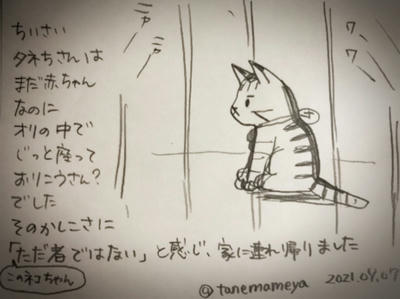 ちいさい
タネちさんは
まだ赤ちゃん
なのに
オリの中で
じっと座って
おりこうさん?
でした
そのかしこさに
「ただ者ではない」と感じ、家に連れ帰りました
このネコちゃん
ニャー
ニャー
ワー
ワー
@tanemameya
2021.04.07